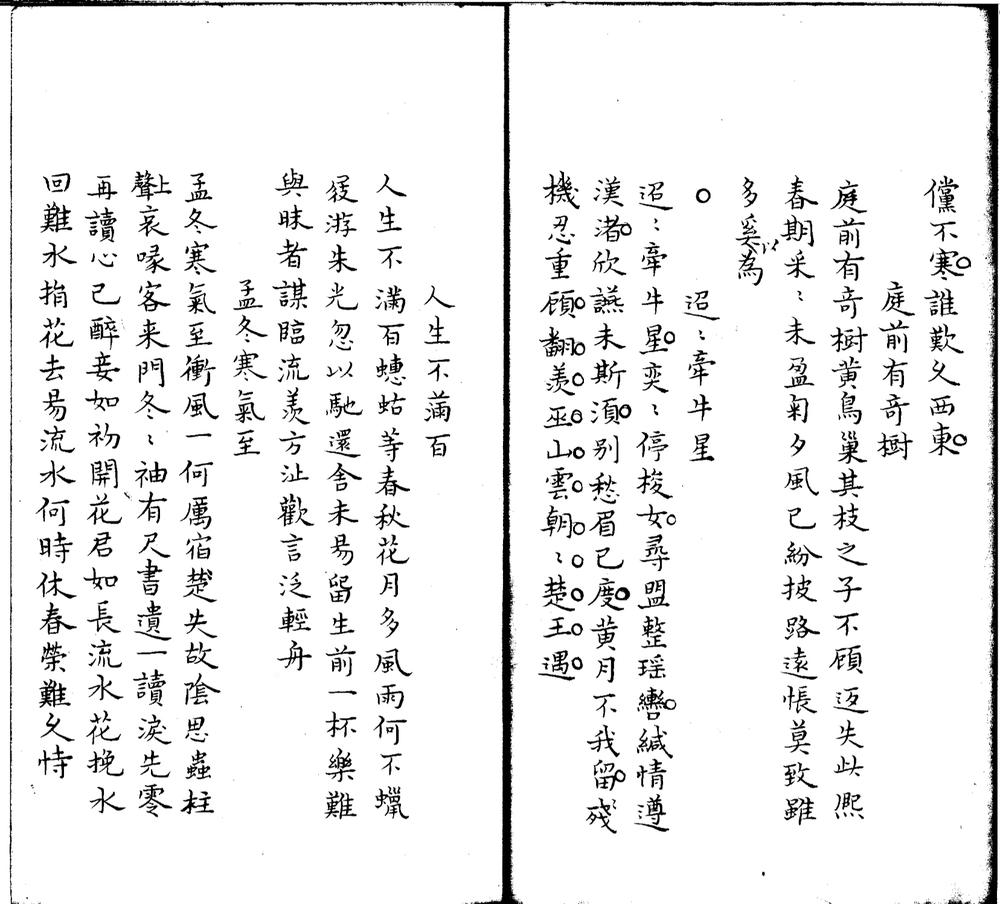 儻不寒誰歎久西東
庭前有竒樹
庭前有竒樹黄鳥巢其枝之子不顧返失此熙
春期采〻未盈匊夕風已紛披路遠悵莫致雖
多奚以為
迢〻牽牛星
迢〻牽牛星奕〻停梭女尋盟整瑶轡緘情遵
漢渚欣讌未斯須别愁眉已度黄月不我留殘
機忍重顧翻羡巫山雲朝〻楚王遇
人生不滿百
人生不滿百蟪蛄等春秋花月多風雨何不蠟
屐游朱光忽以馳還舍未易留生前一杯樂難
與昧者謀臨流羨方沚歡言泛輕舟
孟冬寒氣至
孟冬寒氣至衝風一何厲宿楚失故陰思蟲柱
上聲哀喙客来門冬〻袖有尺書遺一讀淚先零
再讀心已醉妾如初開花君如長流水花挽水
回難水捐花去易流水何時休春榮難久恃